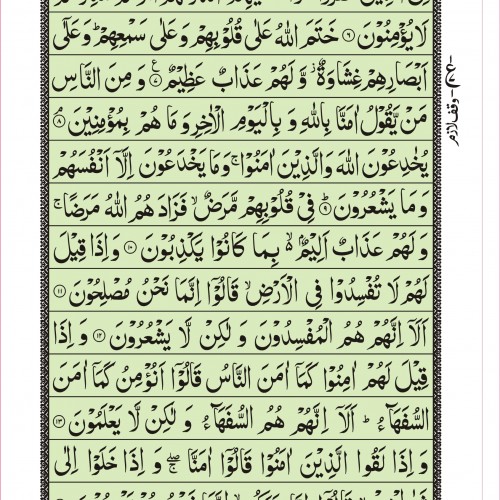 لَا يُؤْمِنُوْنَ ۝۶ خَتَمَ اللّٰهُ عَلٰى قُلُوْبِهِمْ وَعَلٰى سَمْعِهِمْ ؕ وَعَلٰٓى
اَبْصَارِهِمْ غِشَاوَةٌ ز وَّ لَهُمْ عَذَابٌ عَظِيْمٌ ۝۷ ع وَ مِنَ النَّاسِ
مَنْ يَّقُوْلُ اٰمَنَّا بِاللّٰهِ وَ بِالْيَوْمِ الْاٰخِرِ وَ مَا هُمْ بِمُؤْمِنِيْنَ ۝۸ۘ
يُخٰدِعُوْنَ اللّٰهَ وَالَّذِيْنَ اٰمَنُوْا ۚ وَمَا يَخْدَعُوْنَ اِلَّاۤ اَنْفُسَهُمْ
وَ مَا يَشْعُرُوْنَ ۝۹ فِيْ قُلُوْبِهِمْ مَّرَضٌ ۙ فَزَادَ هُمُ اللّٰهُ مَرَضًا ۚ
وَ لَهُمْ عَذَابٌ اَلِيْمٌۢ ۙ بِمَا كَانُوْا يَكْذِبُوْنَ ۝۱۰ وَاِذَا قِيْلَ
لَهُمْ لَا تُفْسِدُوْا فِى الْاَرْضِ ۙ قَالُوْۤا اِنَّمَا نَحْنُ مُصْلِحُوْنَ ۝۱۱
اَلَاۤ اِنَّهُمْ هُمُ الْمُفْسِدُوْنَ وَ لٰكِنْ لَّا يَشْعُرُوْنَ ۝۱۲ وَ اِذَا
قِيْلَ لَهُمْ اٰمِنُوْا كَمَاۤ اٰمَنَ النَّاسُ قَالُوْۤا اَنُؤْمِنُ كَمَاۤ اٰمَنَ
السُّفَهَآءُ ؕ اَلَاۤ اِنَّهُمْ هُمُ السُّفَهَآءُ وَ لٰكِنْ لَّا يَعْلَمُوْنَ ۝۱۳
وَ اِذَا لَقُوا الَّذِيْنَ اٰمَنُوْا قَالُوْۤا اٰمَنَّا ۖۚ وَ اِذَا خَلَوْا اِلٰى
وقف لازم